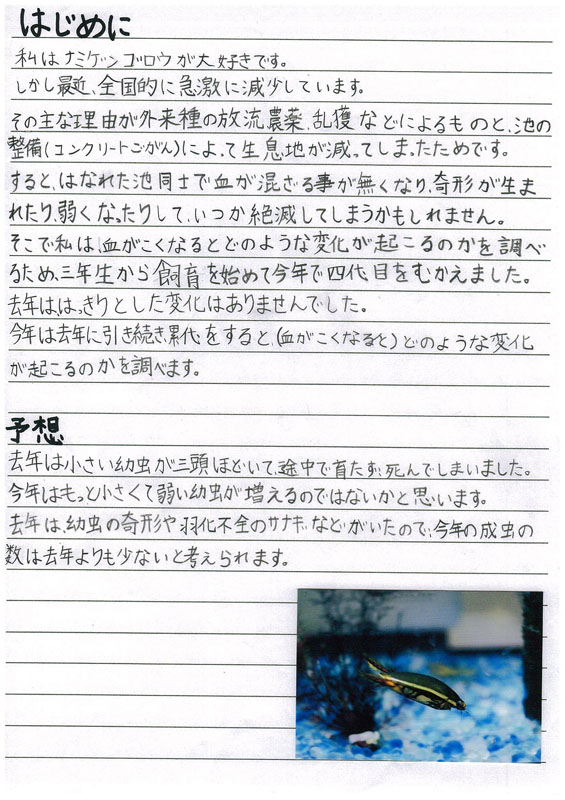 はじめに
私はナミゲンゴロウが大好きです。
しかし最近、全国的に急激に減少しています。
その主な理由が外来種の放流、農薬、乱獲などによるものと、池の
整備(コンクリートごがん)によって生息地が減ってしまったためです。
すると、はなれた池同士で血が混ざる事が無くなり、奇形が生ま
れたり、弱くなったりして、いつか絶滅してしまうかもしれません。
そこで私は、血がこくなるとどのような変化が起こるのかを調べ
るため、三年生から飼育を始めて今年で四代目をむかえました。
去年は、はっきりとした変化はありませんでした。
今年は去年に引き続き、累代をすると、(血がこくなると)どのような変化
が起こるのかを調べます。
予想
去年は小さい幼虫が三頭ほどいて、途中で育たず、死んでしまいました。
今年はもっと小さくて弱い幼虫が増えるのではないかと思います。
去年は、幼虫の奇形や羽化不全のサナギなどがいたので、今年の成虫の
数は去年よりも少ないと考えられます。